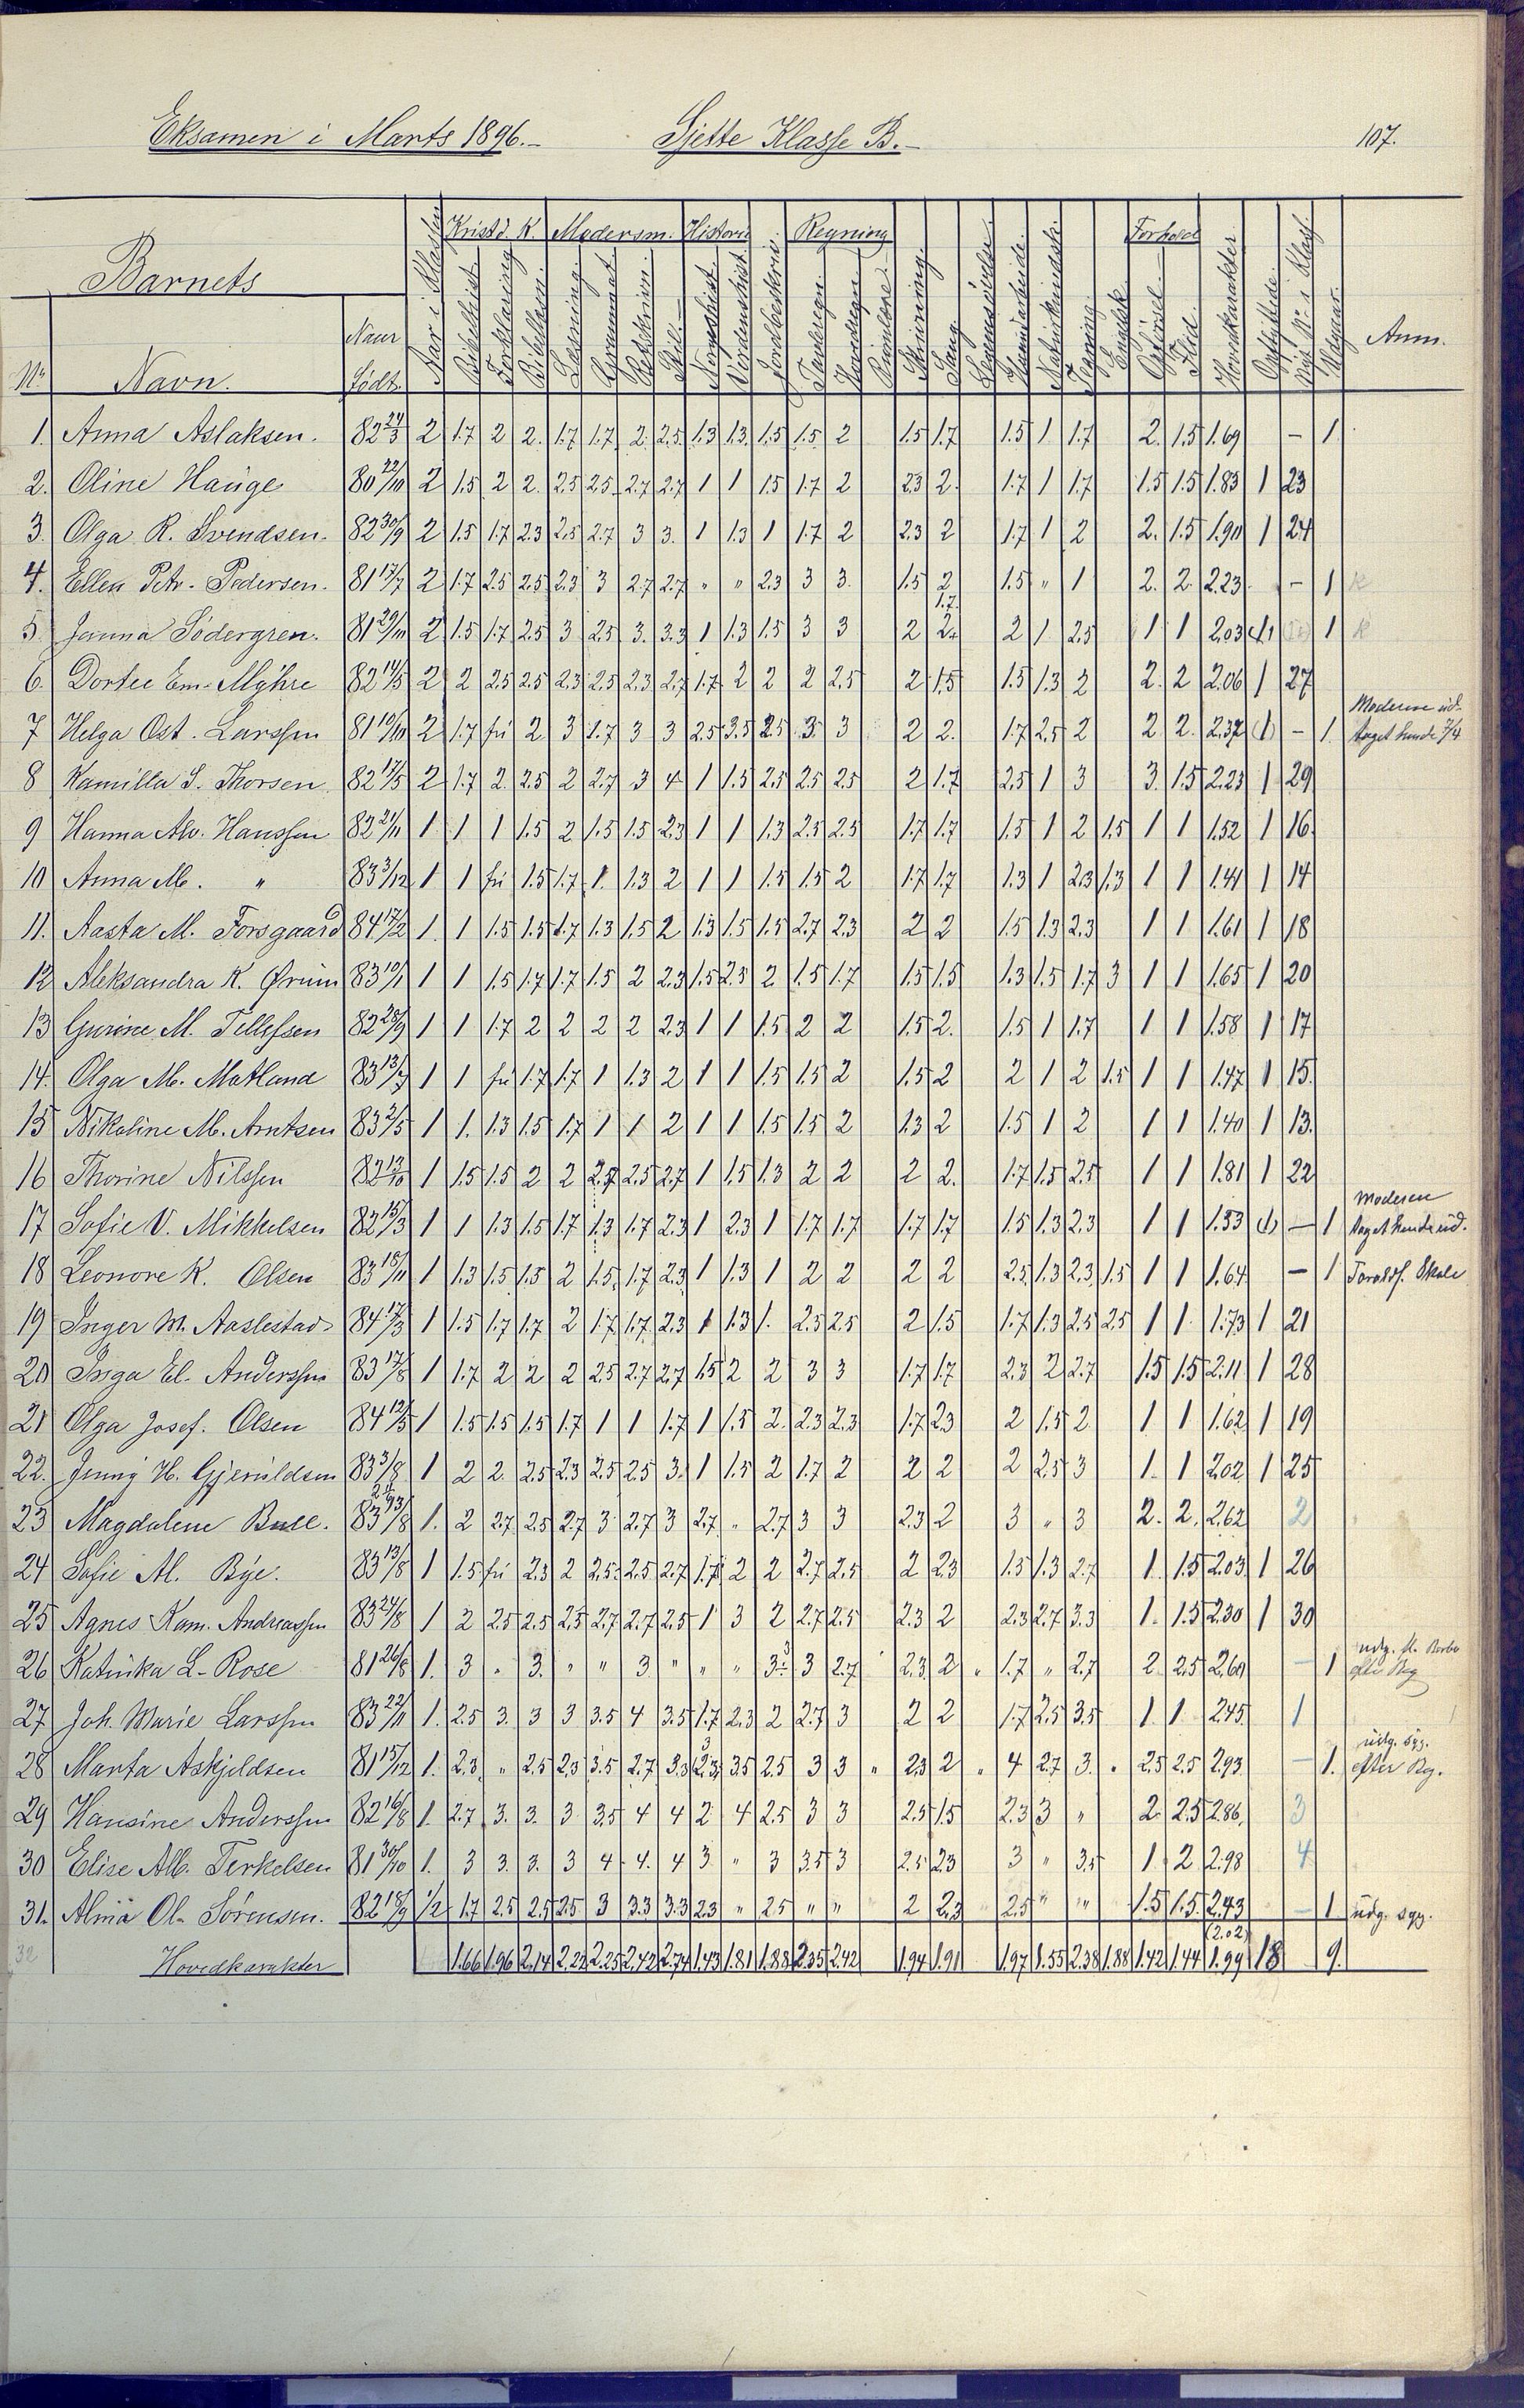 Eksamen i Marts 1896.- Sjette Klasse B.- 107.
Barnets Aar i Klassen Kristd. K. Modersm. Historie Regning Forhold Anm.
Nr Navn. Naar født. Bibelhist. Forklaring Bibellæsn. Læsning Grammat. Retskrivn. Stil. Norgeshist. Verdenshist. Jordbeskriv. Tavleregn. Hovedregn. Rumlære Skrivning. Sang. Legemsøvelser. Haandarbeide. Naturkundsk. Tegning. Engelsk Opførsel Flid Hovedkarakter Opflyttede.
1. Anna Aslaksen. 82 24/3 2 1.7 2 2. 1.7 1.7 2. 2.5 1.3 1.3. 1.5 1.5 2 1.5 1.7 1.5 1 1.7 2. 1.5 1.69 - 1
2. Oline Hauge 80 22/10 2 1.5 2 2. 2.5 2.5 2.7 2.7 1 1 1.5 1.7 2 2.3 2. 1.7 1 1.7 1.5 1.5 1.83 1 23
3. Olga R. Svendsen. 82 30/9 2 1.5 1.7 2.3 2.5 2.7 3 3. 1 1.3 1 1.7 2 2.3 2 1.7 1 2 2. 1.5 1.90 1 24
4. Ellen Petr. Pedersen. 81 17/7 2 1.7 2.5 2.5 2.3 3 2.7 2.7 " " 2.3 3 3. 1.5 2 1.5 " 1 2. 2. 2.23 - 1 k
1.7.
5. Janna Södergren. 81 29/10 2 1.5 1.7 2.5 3 2.5 3. 3.3 1 1.3 1.5 3 3 2 2. 2 1 2.5 1 1 2.03 (1) 1 k
6. Dortee Em. Myhre 82 14/5 2 2 2.5 2.5 2.3 2.5 2.3 2.7 1.7 2 2 2 2.5 2 1.5 1.5 1.3 2 2. 2 2.06 1 27
Moderen ud-
7 Helga Ost. Larssen 81 10/10 2 1.7 fri 2 3 1.7 3 3 2.5 3.5 2.5 3. 3 2 2. 1.7 2.5 2 2 2. 2.37 (1) - 1. taget hende 7/4
8 Kamilla S. Thorsen 82 17/5 2 1.7 2. 2.5 2 2.7 3 4 1 1.5 2.5 2.5 2.5 2 1.7 2.5 1 3 3. 1.5 2.23 1 29
9 Hanna Alv. Hanssen 82 21/11 1. 1 1 1.5 2 1.5 1.5 2.3 1 1 1.3 2.5 2.5 1.7 1.7 1.5 1 2 1.5 1 1 1.52 1 16.
10 Anna M. " 83 3/12 1 1 fri 1.5 1.7 1. 1.3 2 1 1 1.5 1.5 2 1.7 1.7 1.3 1 2.3 1.3 1 1 1.41 1 14
11. Aasta M. Forsgaard 84 17/2 1. 1 1.5 1.5 1.7 1.3 1.5 2 1.3 1.5 1.5 2.7 2.3 2 2 1.5 1.3 2.3 1 1 1.61 1 18
12 Aleksandra K. Ørum 83 10/1 1 1 1.5 1.7 1.7 1.5 2 2.3 1.5 2.3 2 1.5 1.7 1.5 1.5 1.3 1.5 1.7 3 1 1 1.65 1 20
13 Gurine M. Tellefsen 82 28/9 1 1 1.7 2 2 2 2 2.3 1 1 1.5 2 2 1.5 2. 1.5 1 1.7 1 1 1.58 1 17
14. Olga M. Matland 83 13/7 1 1 fri 1.7 1.7 1 1.3 2 1 1 1.5 1.5 2 1.5 2 2 1 2 1.5 1 1 1.47 1 15.
15 Nikoline M. Arntsen 83 2/5 1 1. 1.3 1.5 1.7 1 1 2 1 1 1.5 1.5 2 1.3 2 1.5 1 2 1 1 1.40 1 13.
16 Thorine Nilssen 82 13/10 1 1.5 1.5 2 2 2.7 2.5 2.7 1 1.5 1.3 2 2 2 2. 1.7 1.5 2.5 1 1 1.81 1 22
Moderen
17 Sofie V. Mikkelsen 82 15/3 1 1 1.3 1.5 1.7 1.3 1.7 2.3 1 2.3 1 1.7 1.7 1.7 1.7 1.5 1.3 2.3 1 1 1.53 (1) - 1 taget hende ud.
18 Leonore K. Olsen 83 18/11 1 1.3 1.5 1.5 2 1.5 1.7 2.3 1 1.3 1 2 2 2 2 2.3 1.3 2.3 1.5 1 1 1.64 - 1 Skole
19 Inger M. Aaslestad 84 17/3 1 1.5 1.7 1.7 2 1.7 1.7 2.3 1 1.3 1. 2.5 2.5 2 1.5 1.7 1.3 2.5 2.5 1 1 1.73 1 21
20 Inga El. Anderssen 83 17/8 1 1.7 2 2 2 2.5 2.7 2.7 1.5 2 2 3 3 1.7 1.7 2.3 2 2.7 1.5 1.5 2.11 1 28
21 Olga Josef. Olsen 84 12/5 1 1.5 1.5 1.5 1.7 1 1 1.7 1 1.5 2. 2.3 2.3 1.7 2.3 2 1.5 2 1 1 1.62 1 19
22. Jenny H. Gjeruldsen 83 3/8 1 2 2. 2.5 2.3 2.5 2.5 3. 1 1.5 2 1.7 2 2 2 2 2.5 3 1. 1 2.02 1 25
23 Magdalene Bull. 83 1. 2 2.7 2.5 2.7 3 2.7 3 2.7 " 2.7 3 3 2.3 2 3 " 3 2. 2. 2.62 2
24 Sofie Al. Bye. 83 13/8 1 1.5 fri 2.3 2 2.5 2.5 2.7 1.7 2 2 2.7 2.5 2 2.3 1.5 1.3 2.7 1. 1.5 2.03 1 26
25 Agnes Kam. Andreassen 83 24/8 1 2 2.5 2.5 2.5 2.7 2.7 2.5 1 3 2 2.7 2.5 2.3 2 2.3 2.7 3.3 1. 1.5 2.30 1 30
26 Katinka L. Rose 81 26/8 1. 3 " 3. " " 3 " " " 3 3 2.7 2.3 2 " 1.7 " 2.7 2 2.5 2.60 - 1
27 Joh. Marie Larssen 83 22/11 1. 2.5 3. 3 3 3.5 4 3.5 1.7 2.3 2 2.7 3 2 2 1.7 2.5 3.5 1. 1 2.45 1
udg. syg.
28 Marta Askjeldsen 81 15/12 1. 2.3 " 2.5 2.3 3.5 2.7 3.3 2.3 3.5 2.5 3 3 " 2.3 2 " 4 2.7 3. " 2.5 2.5 2.93 - 1. efter Beg.
29 Hansine Anderssen 82 16/8 1. 2.7 3. 3. 3 3.5 4 4 2 4 2.5 3 3 2.5 1.5 2.3 3 " 2. 2.5 2.86. 3
30 Elise Alb. Terkelsen 81 30/10 1. 3 3. 3. 3 4 4. 4 3. " 3 3.5 3 2.5 2.3 3 " 3.5 1 2 2.98 4
31. Alma Ol. Sörensen. 82 18/9 1/2 1.7 2.5 2.5 2.5 3 3.3 3.3 2.3 " 2.5 " " 2 2.3 2.5 " " 1.5 1.5. 2.43 - 1 udg. syg.
(2.02)
32 Hovedkarakter 1.66 1.96 2.14 2.22 2.25 2.42 2.74 1.43 1.81 1.88 2.35 2.42 1.94 1.91 1.97 1.55 2.38 1.88 1.42 1.44 1.99 18 9.